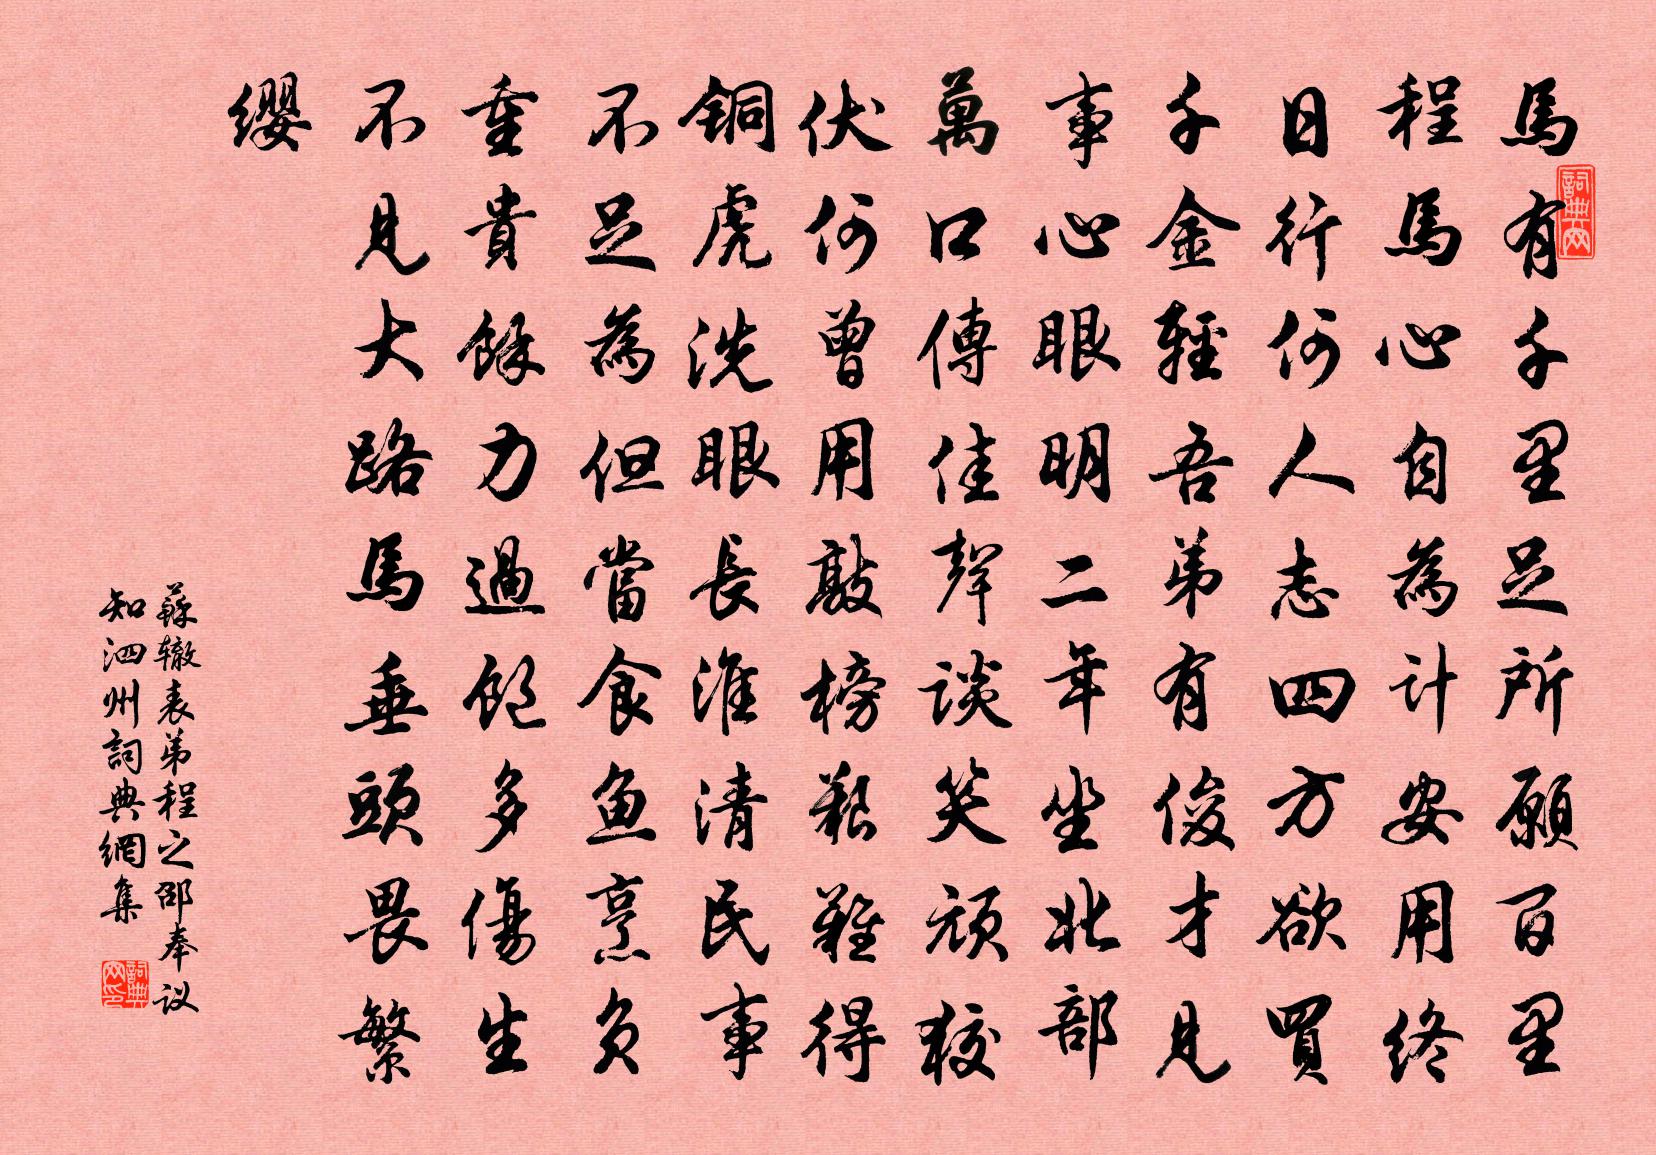 馬有千里足所願百里
程馬心自為计安用终
日行何人志四方欲買
千金輕吾弟有俊才見
事心眼明二年坐北部
萬口傳佳聲談笑頑狡
伏何曾用敲榜艱難得
铜虎洗眼長淮清民事
不足為但當食魚烹负
重貴餘力過飽多傷生
不見大路馬垂頭畏繁
缨
蘇辙表弟程之邵奉议
知泗州詞典網集
詞典网
詞典网印